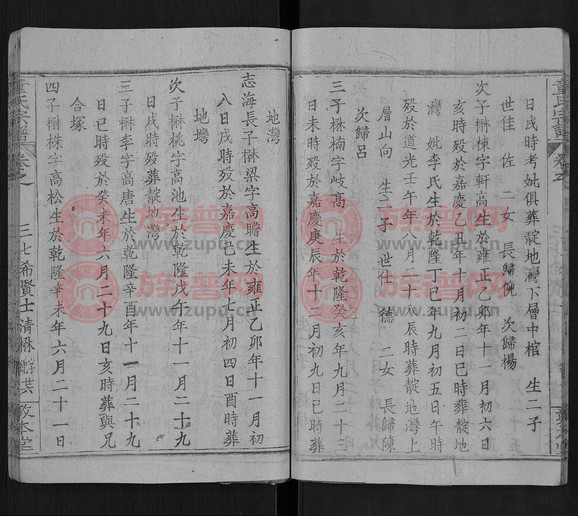 日戌時考妣俱葬靛地灣下層中棺 生二子
世佳 佐 二女 長歸倪 次歸楊
次子楙棟字軒高生於雍正乙卯年十一月初六日
殁於嘉慶乙丑年十月初二日巳時葬靛地
灣 妣李氏生於乾隆丁巳年九月初五日午時
殁於道光壬午年八月二十八辰時葬靛地灣上
層山向 生二子 世仕 德 二女 長歸陳
次歸呂
三子楙楠字岐高 生於乾隆癸亥年九月二十三
日未時殁於嘉慶庚辰年十二月初九日巳時葬
地灣
志海長子楙梁字高贍生於雍正乙卯年十一月初
八日戌時殁於嘉慶己未年七月初四日酉時葬
地灣
次子楙桃字高池生於乾隆戊午年十一月二十九
日戌時殁葬靛地灣
三子楙李字高唐生於乾隆辛酉年十一月二十九
日巳時殁於癸未年六月二十九日亥時葬與兄
合塚
四子楙棟字高松生於乾隆辛未年六月二十一日
童氏宗譜 卷之 三七希賢士清楙 洪 敦本堂
www.zupu.cn
族譜网